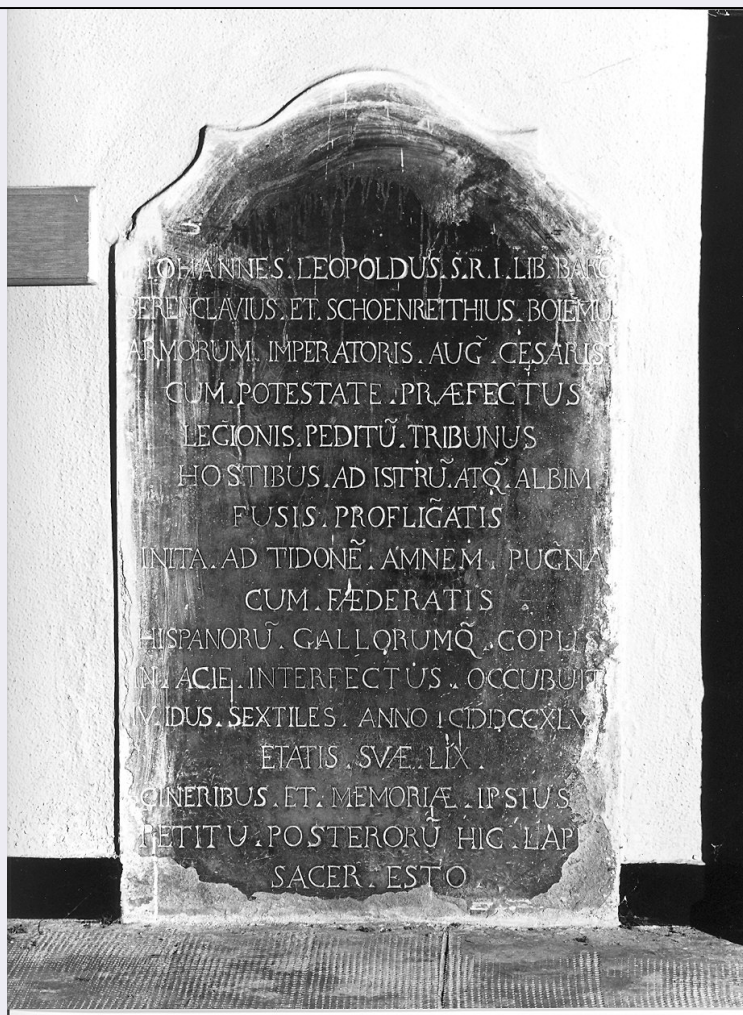 IOHANNES . LEOPOLDUS . S . R . I . LIB . BARO
BERENCLAVIUS . ET . SCHOENREITHIUS . BOIEMU
ARMORUM . IMPERATORIS . AUG̃ . CESARIS
CUM . POTESTATE . PRÆFECTUS
LEGIONIS . PEDITŨ . TRIBUNUS
HOSTIBUS . AD ISTRŨ . ATQ̃ . ALBIM
FUSIS . PROFLIG̃ATIS
INITA . AD TIDONẼ . AMNEM . PUG̃NA
CUM . FÆDERATIS
HISPANORŨ . GALLORUMQ̃ . COPIIS
IN . ACIE . INTERFECTUS . OCCUBUIT
IDUS . SEXTILES . ANNO
ETATIS . SVÆ . LIX .
CINERIBUS . ET . MEMORIÆ . IPSIUS
PETITU . POSTERORŨ HIC . LAPI
SACER . ESTO